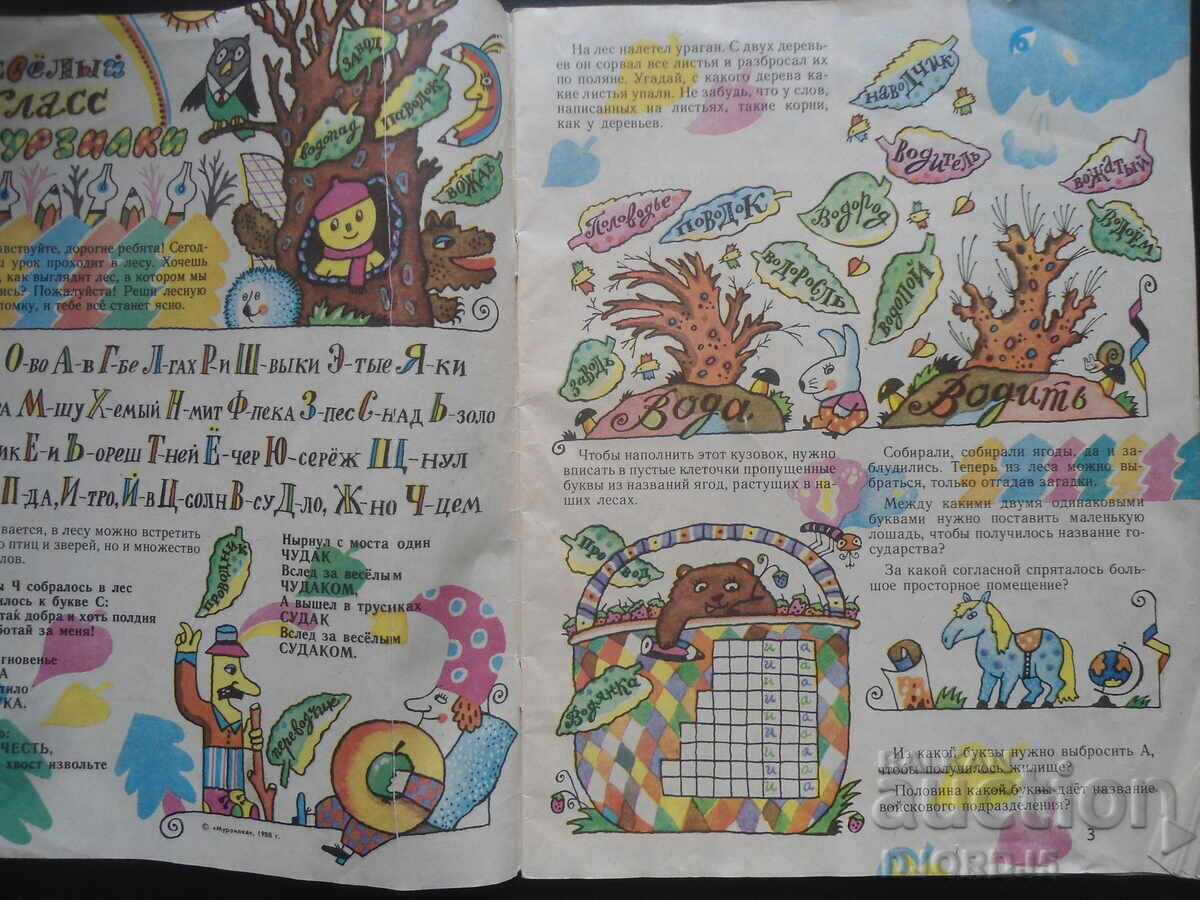 сёлый
класс
урзилки
завод
паводок
водопад
вожак
дорогие ребята! Сегод-
урок проходит в лесу. Хочешь
как выглядит лес, в котором мы
Пожалуйста! Реши лесную
и тебе всё станет ясно.
О-во А-в Г-бе Л-гах Р-и Ш-выки Э-тые Я-ки
М-шу Х-емый Н-мит Ф-пека З-пес С-над Ь-золо
ик Е-и Ъ-ореш Т-ней Ё-чер Ю-серёж Щ-нул
П-да, И-тро, Й-в Ц-солн В-су Д-ло, Ж-но Ч-цем
вается, в лесу можно встретить
о птиц и зверей, но и множество
лов.
ы Ч собралось в лес
илось к букве С:
так добра и хоть полдня
ботай за меня!
гновенье
А
пило
КА.
ЧЕСТЬ,
хвост извольте
Нырнул с моста один
ЧУДАК
Вслед за весёлым
ЧУДАКОМ,
А вышел в трусиках
СУДАК
Вслед за весёлым
СУДАКОМ.
проводник
переводчик
© «Мурзилка», 1988 г.
На лес налетел ураган. С двух деревь-
ев он сорвал все листья и разбросал их
по поляне. Угадай, с какого дерева ка-
кие листья упали. Не забудь, что у слов,
написанных на листьях, такие корни,
как у деревьев.
наводчик
водитель
вожатый
Половодье
поводок
Водород
Водоём
водоросль
водопой
заводь
Вода
Водить
Чтобы наполнить этот кузовок, нужно
вписать в пустые клеточки пропущенные
буквы из названий ягод, растущих в на-
ших лесах.
про
вод
Водянка
и а
и а
и а
и а
и а
и а
и а
и а
и а
Собирали, собирали ягоды, да и за-
блудились. Теперь из леса можно вы-
браться, только отгадав загадки.
Между какими двумя одинаковыми
буквами нужно поставить маленькую
лошадь, чтобы получилось название го-
сударства?
За какой согласной спряталось боль-
шое просторное помещение?
Из какой буквы нужно выбросить А,
чтобы получилось жилище?
Половина какой буквы даёт название
войскового подразделения?
3
auction
DJORDJ5